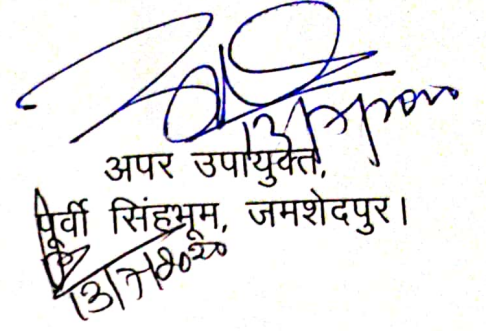 13/7/2020
अपर उपायुक्त,
पूर्वी सिंहभूम, जमशेदपुर।
13/7/2020